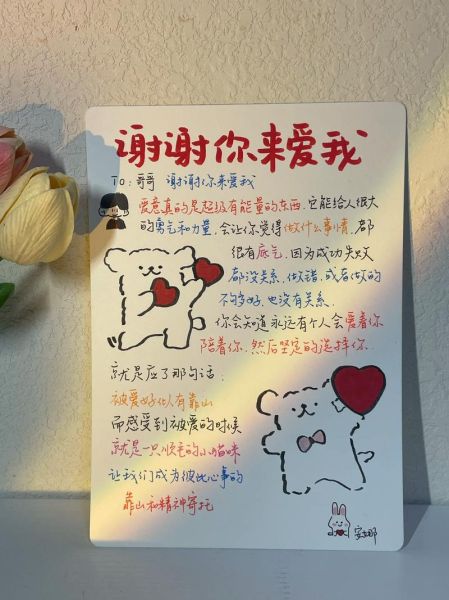 谢谢你来爱我
TO:哥哥 谢谢你来爱我
爱意真的是超级有能量的东西.它能给人很大
的勇气和力量,会让你觉得做什么事情,都
很有底气,因为成功失败
都没关系,做错,或者做的
不够好,也没有关系.
你会知道永远有个人会爱着你
陪着你,然后坚定的选择你.
就是应了那句话:
被爱好似有靠山
而感受到被爱的时候
就是一只顺毛的小猫咪
让我们成为彼此心事的
靠山和精神寄托
安娜